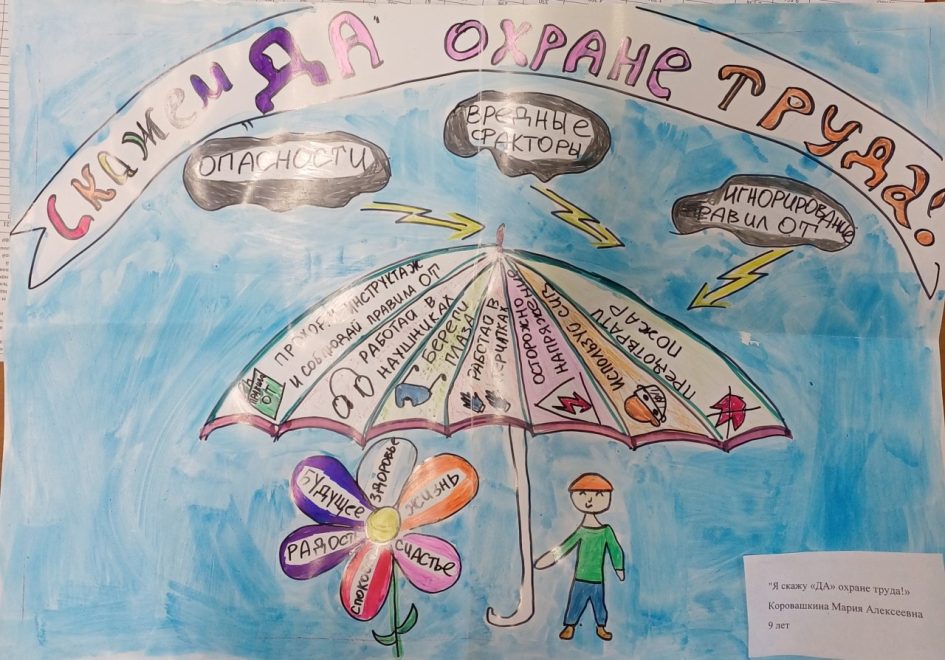 Скажем ДА охране труда!
ОПАСНОСТИ
ВРЕДНЫЕ
ФАКТОРЫ
ИГНОРИРОВАНИЕ
ПРАВИЛ ОТ
ИНСТРУКТАЖ
И СОБЛЮДАЙ ПРАВИЛА ОТ
ПРАВИЛА
ОТ
РАБОТАЙ В
НАУШНИКАХ
БЕРЕГИ
ГЛАЗА
РАБОТАЙ В
ПЕРЧАТКАХ
ОСТОРОЖНО
НАПРЯЖЕНИЕ
ИСПОЛЬЗУЙ СИЗ
ПРЕДОТВРАТИ
ПОЖАР
ЗДОРОВЬЕ
ЖИЗНЬ
СЧАСТЬЕ
СПОКОЙ
РАДОСТЬ
БУДУЩЕЕ
"Я скажу «ДА» охране труда!»
Коровашкина Мария Алексеевна
9 лет